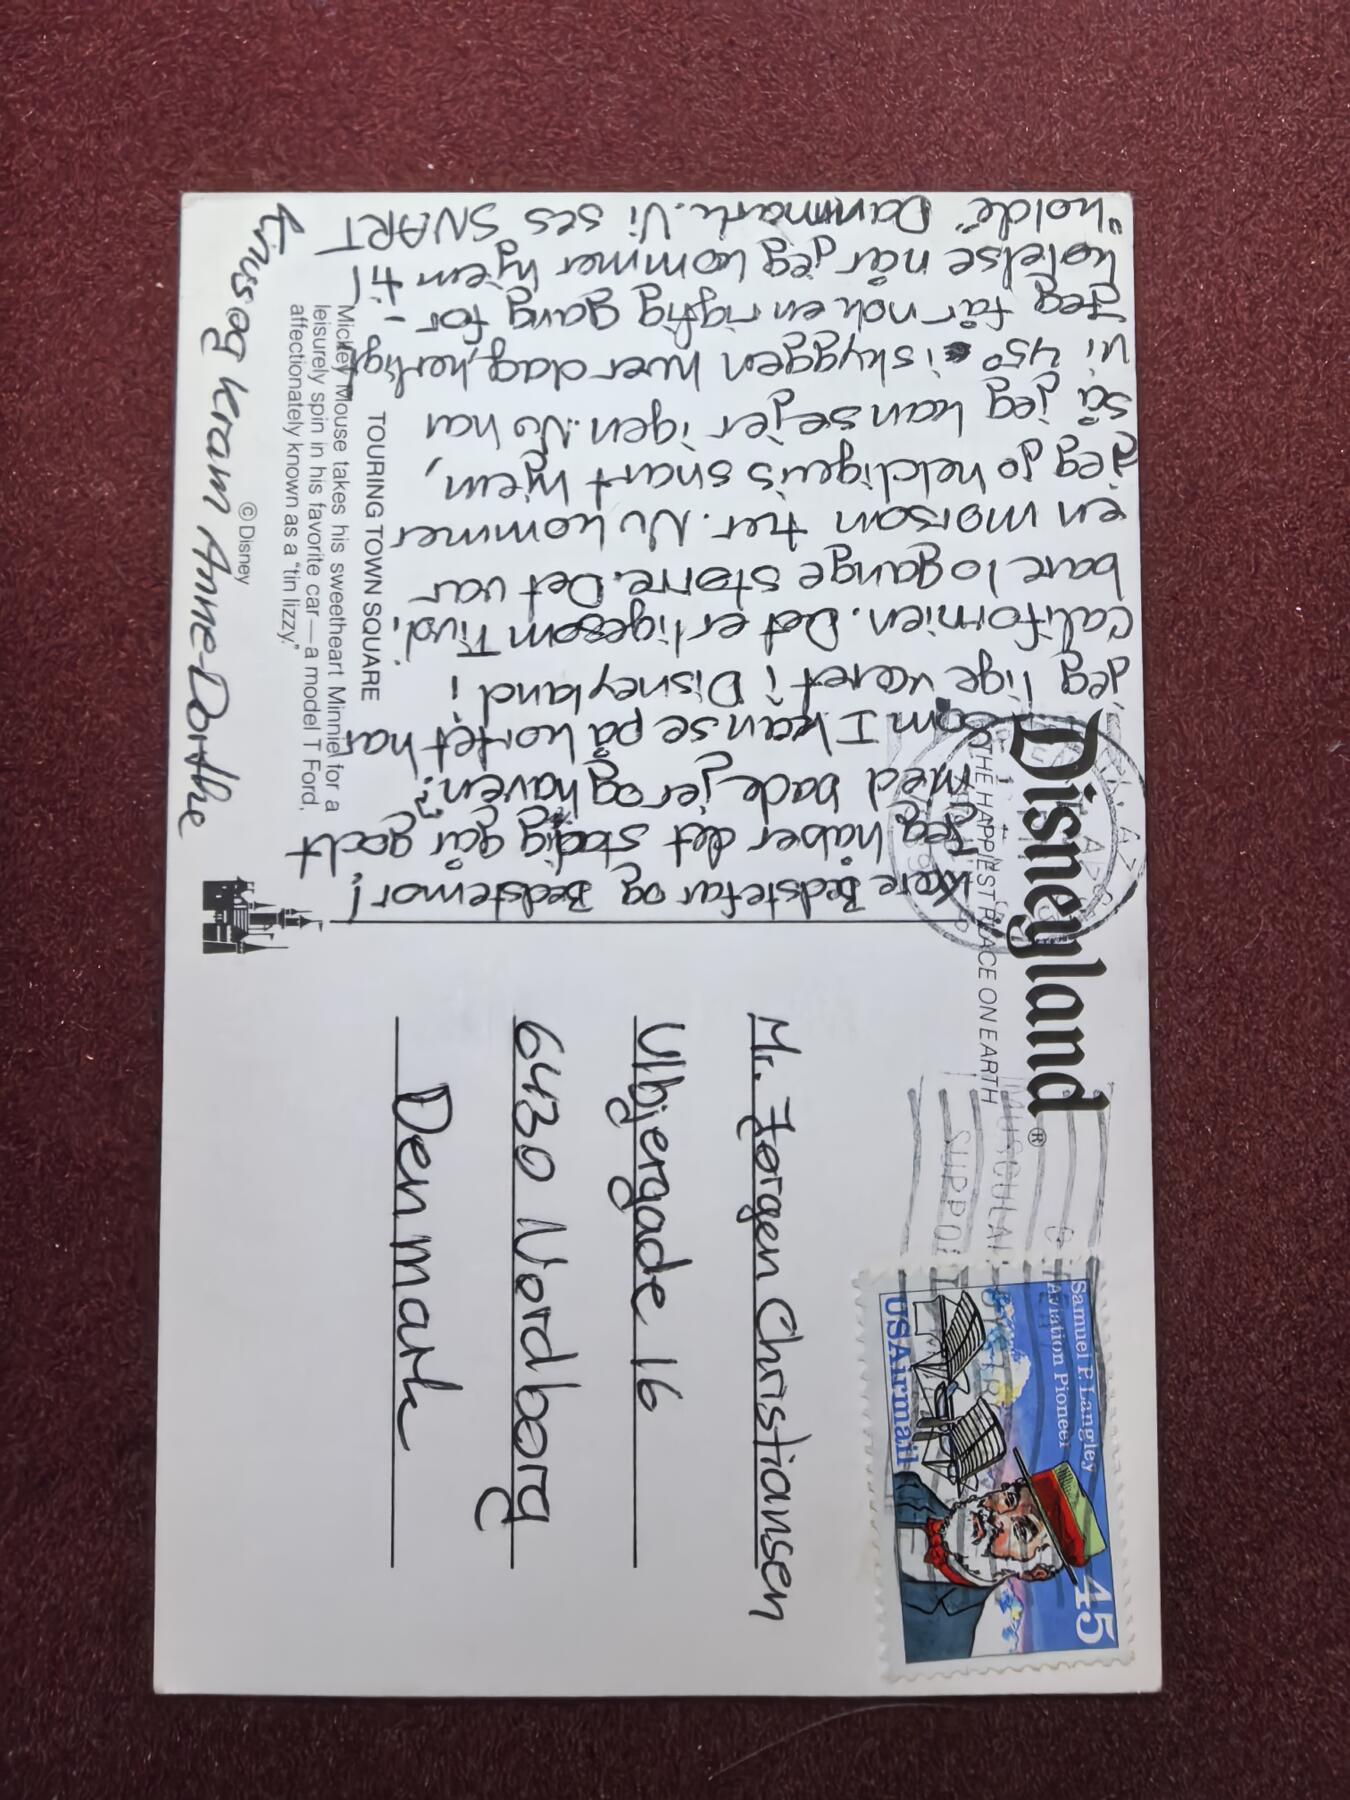 Disneyland®
THE HAPPIEST PLACE ON EARTH
Kære Bedstefar og Bedstemor!
Jeg håber det stadig går godt
med både jer og haven?
Som I kan se på kortet har
jeg lige været i Disneyland i
Californien. Det er ligesom Tivoli
bare 10 gange større. Det var
en morsom tier. Nu kommer
jeg jo heldigvis snart hjem,
så jeg kan se jer igen. Nu har
vi 45° i skyggen hver dag, herligt
Jeg får nok en rigtig gang for-
kølelse når jeg kommer hjem til
"kolde" Danmark. Vi ses SNART
Knus og Kram Anne-Dorthe
TOURING TOWN SQUARE
Mickey Mouse takes his sweetheart Minnie for a
leisurely spin in his favorite car — a model T Ford,
affectionately known as a "tin lizzy."
© Disney
Mr. Jørgen Christiansen
Ulbjergade 16
6430 Nordborg
Denmark
SUPPO
MUSCULA
Samuel P. Langley
Aviation Pioneer
45
USAirmail